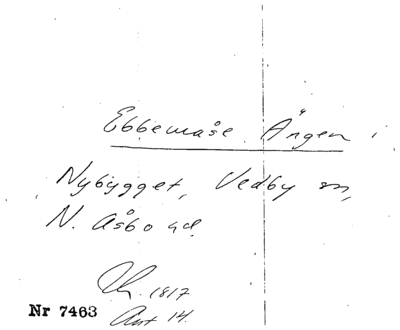 Ebbemåse Ängen i
Nybygget, Vedby sn,
N. Åsbo hd.
1817
Nr 7463 Akt 14.